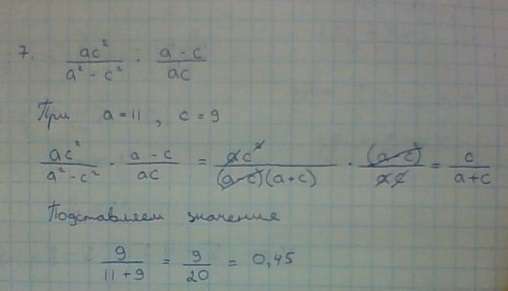 7. ac²/(a² - c²) · (a - c)/ac
При a = 11, c = 9
ac²/(a² - c²) · (a - c)/ac = ac²/((a-c)(a+c)) · (a-c)/ac = c/(a+c)
Подставляем значение
9/(11+9) = 9/20 = 0,45